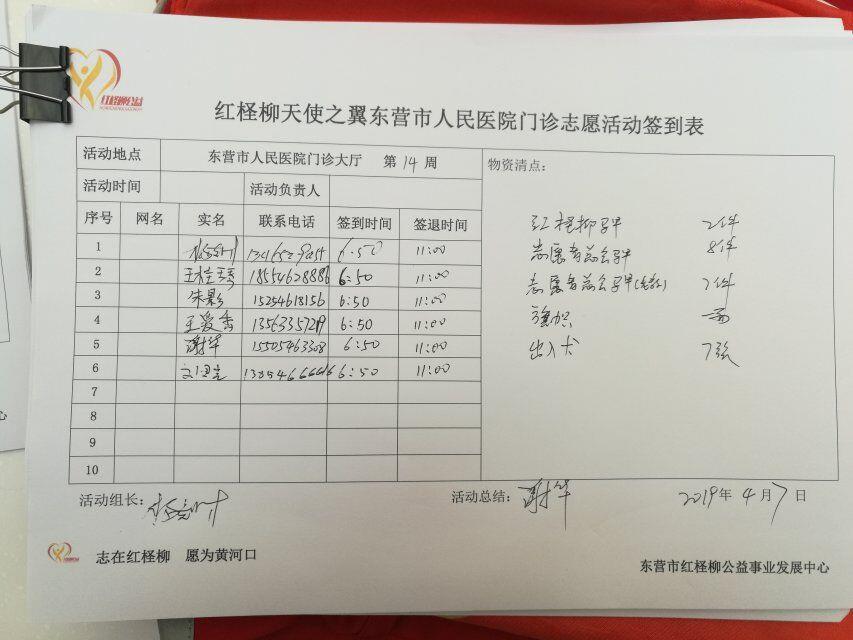 红柽柳公益
红柽柳天使之翼东营市人民医院门诊志愿活动签到表
活动地点 东营市人民医院门诊大厅 第14周
物资清点：
活动时间 活动负责人
序号 网名 实名 联系电话 签到时间 签退时间
红柽柳马甲 2件
志愿者 马甲 8件
志愿者 马甲 7件
旗帜 一面
出入卡 7张
1 6:50 11:00
2 王桂 18554628886 6:50 11:00
3 朱彩 15254618156 6:50 11:00
4 王爱香 13563357219 6:50 11:00
5 谢华 15505463308 6:50 11:00
6 6:50 11:00
7
8
9
10
活动组长： 活动总结：谢华 2019年4月7日
志在红柽柳 愿为黄河口
东营市红柽柳公益事业发展中心